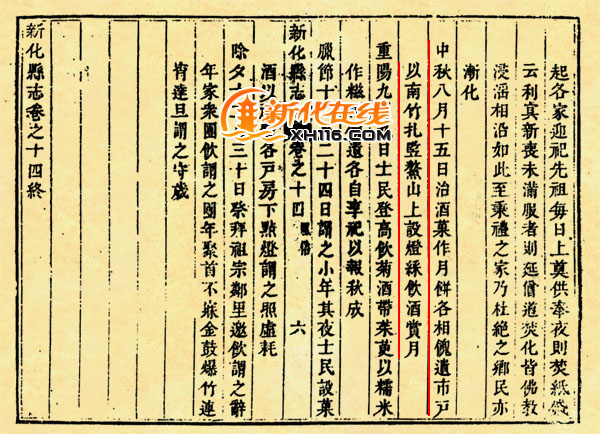 起各家迎祀先祖每日上奠供奉夜則焚紙
云利真新喪未滿服者則延僧道焚化皆佛教
浸淫相沿如此至秉禮之家乃杜絶之鄉民亦
漸化
中秋八月十五日治酒菓作月餅各相餽遺市戸
以南竹扎竪鰲山上設燈綵飲酒賞月
重陽九日士民登高飲菊酒帶茱萸以糯米
作糍遺各自享祀以報秋成
新化縣志卷之十四 風俗 六
臘節十二十四日謂之小年其夜士民設菓
酒以各戸房下點燈謂之照虛耗
除夕十三十日祭拜祖宗鄰里邀飲謂之辭
年家衆團飲謂之團年聚首不寐金鼓爆竹連
宵達旦謂之守歲
新化縣志卷之十四終
新化在线
XH116.COM